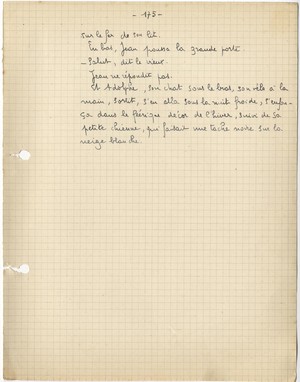 - 173 -
sur le fer de son lit.
En bas, Jean poussa la grande porte
_ Salut, dit le vieux.
Jean ne répondit pas.
Et Adolphe, son chat sous le bras, son vélo à la
main, sortit, s'en alla sous la nuit froide, s'enfon-
ça dans le féerique décor de l'hiver, suivi de sa
petite chienne, qui faisait une tache noire sur la
neige blanche.